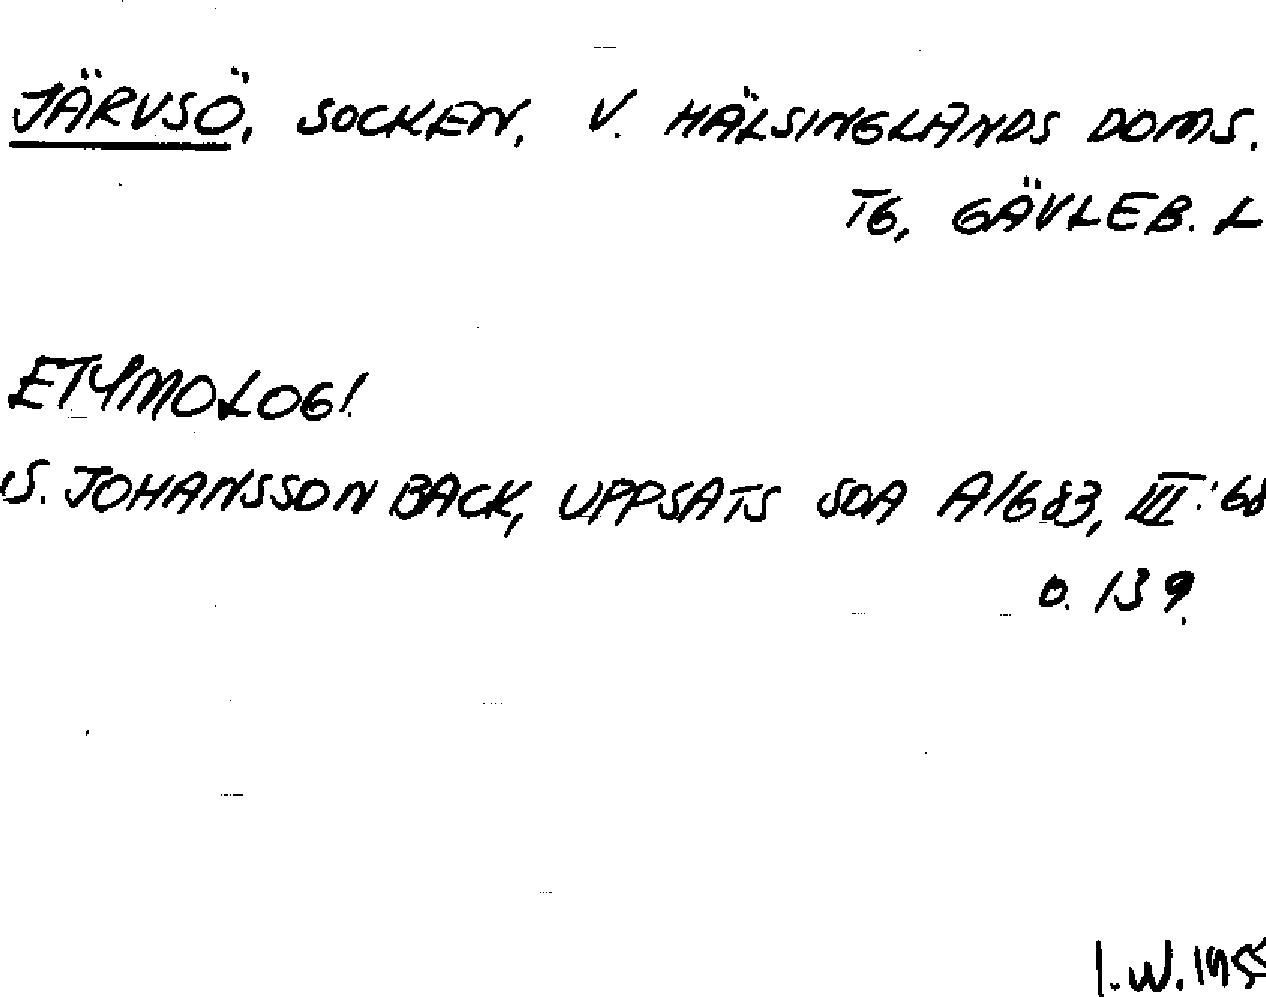 JÄRVSÖ, SOCKEN, V. HÄLSINGLANDS DOMS.
TG, GÄVLEB. L
ETYMOLOGI
S. JOHANSSON BACK, UPPSATS SOA A1683, III:68
o. 139.
I.W. 1955